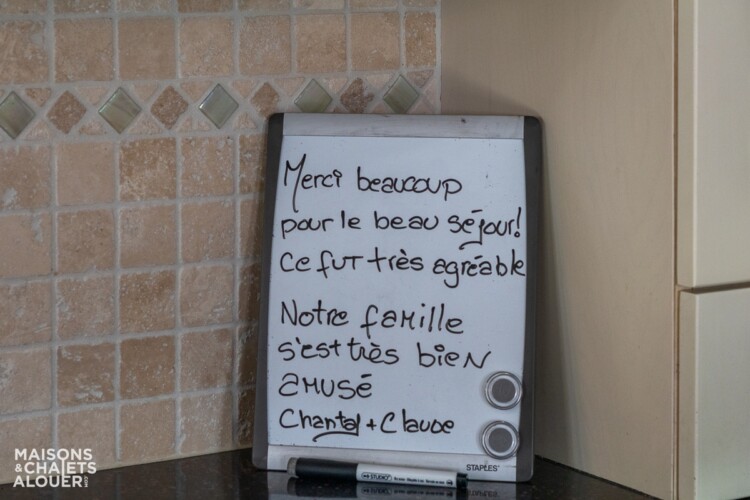 Merci beaucoup
pour le beau séjour!
Ce fut très agréable
Notre famille
s'est très bien
amusé
Chantal + Claude
STAPLES
STUDIO
MAISONS
& CHALETS
ALOUER